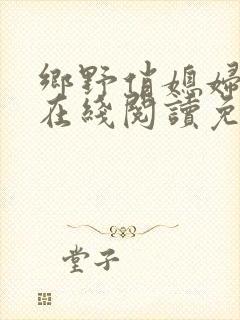 鄉野俏媳婦
在綫閱讀免
堂子